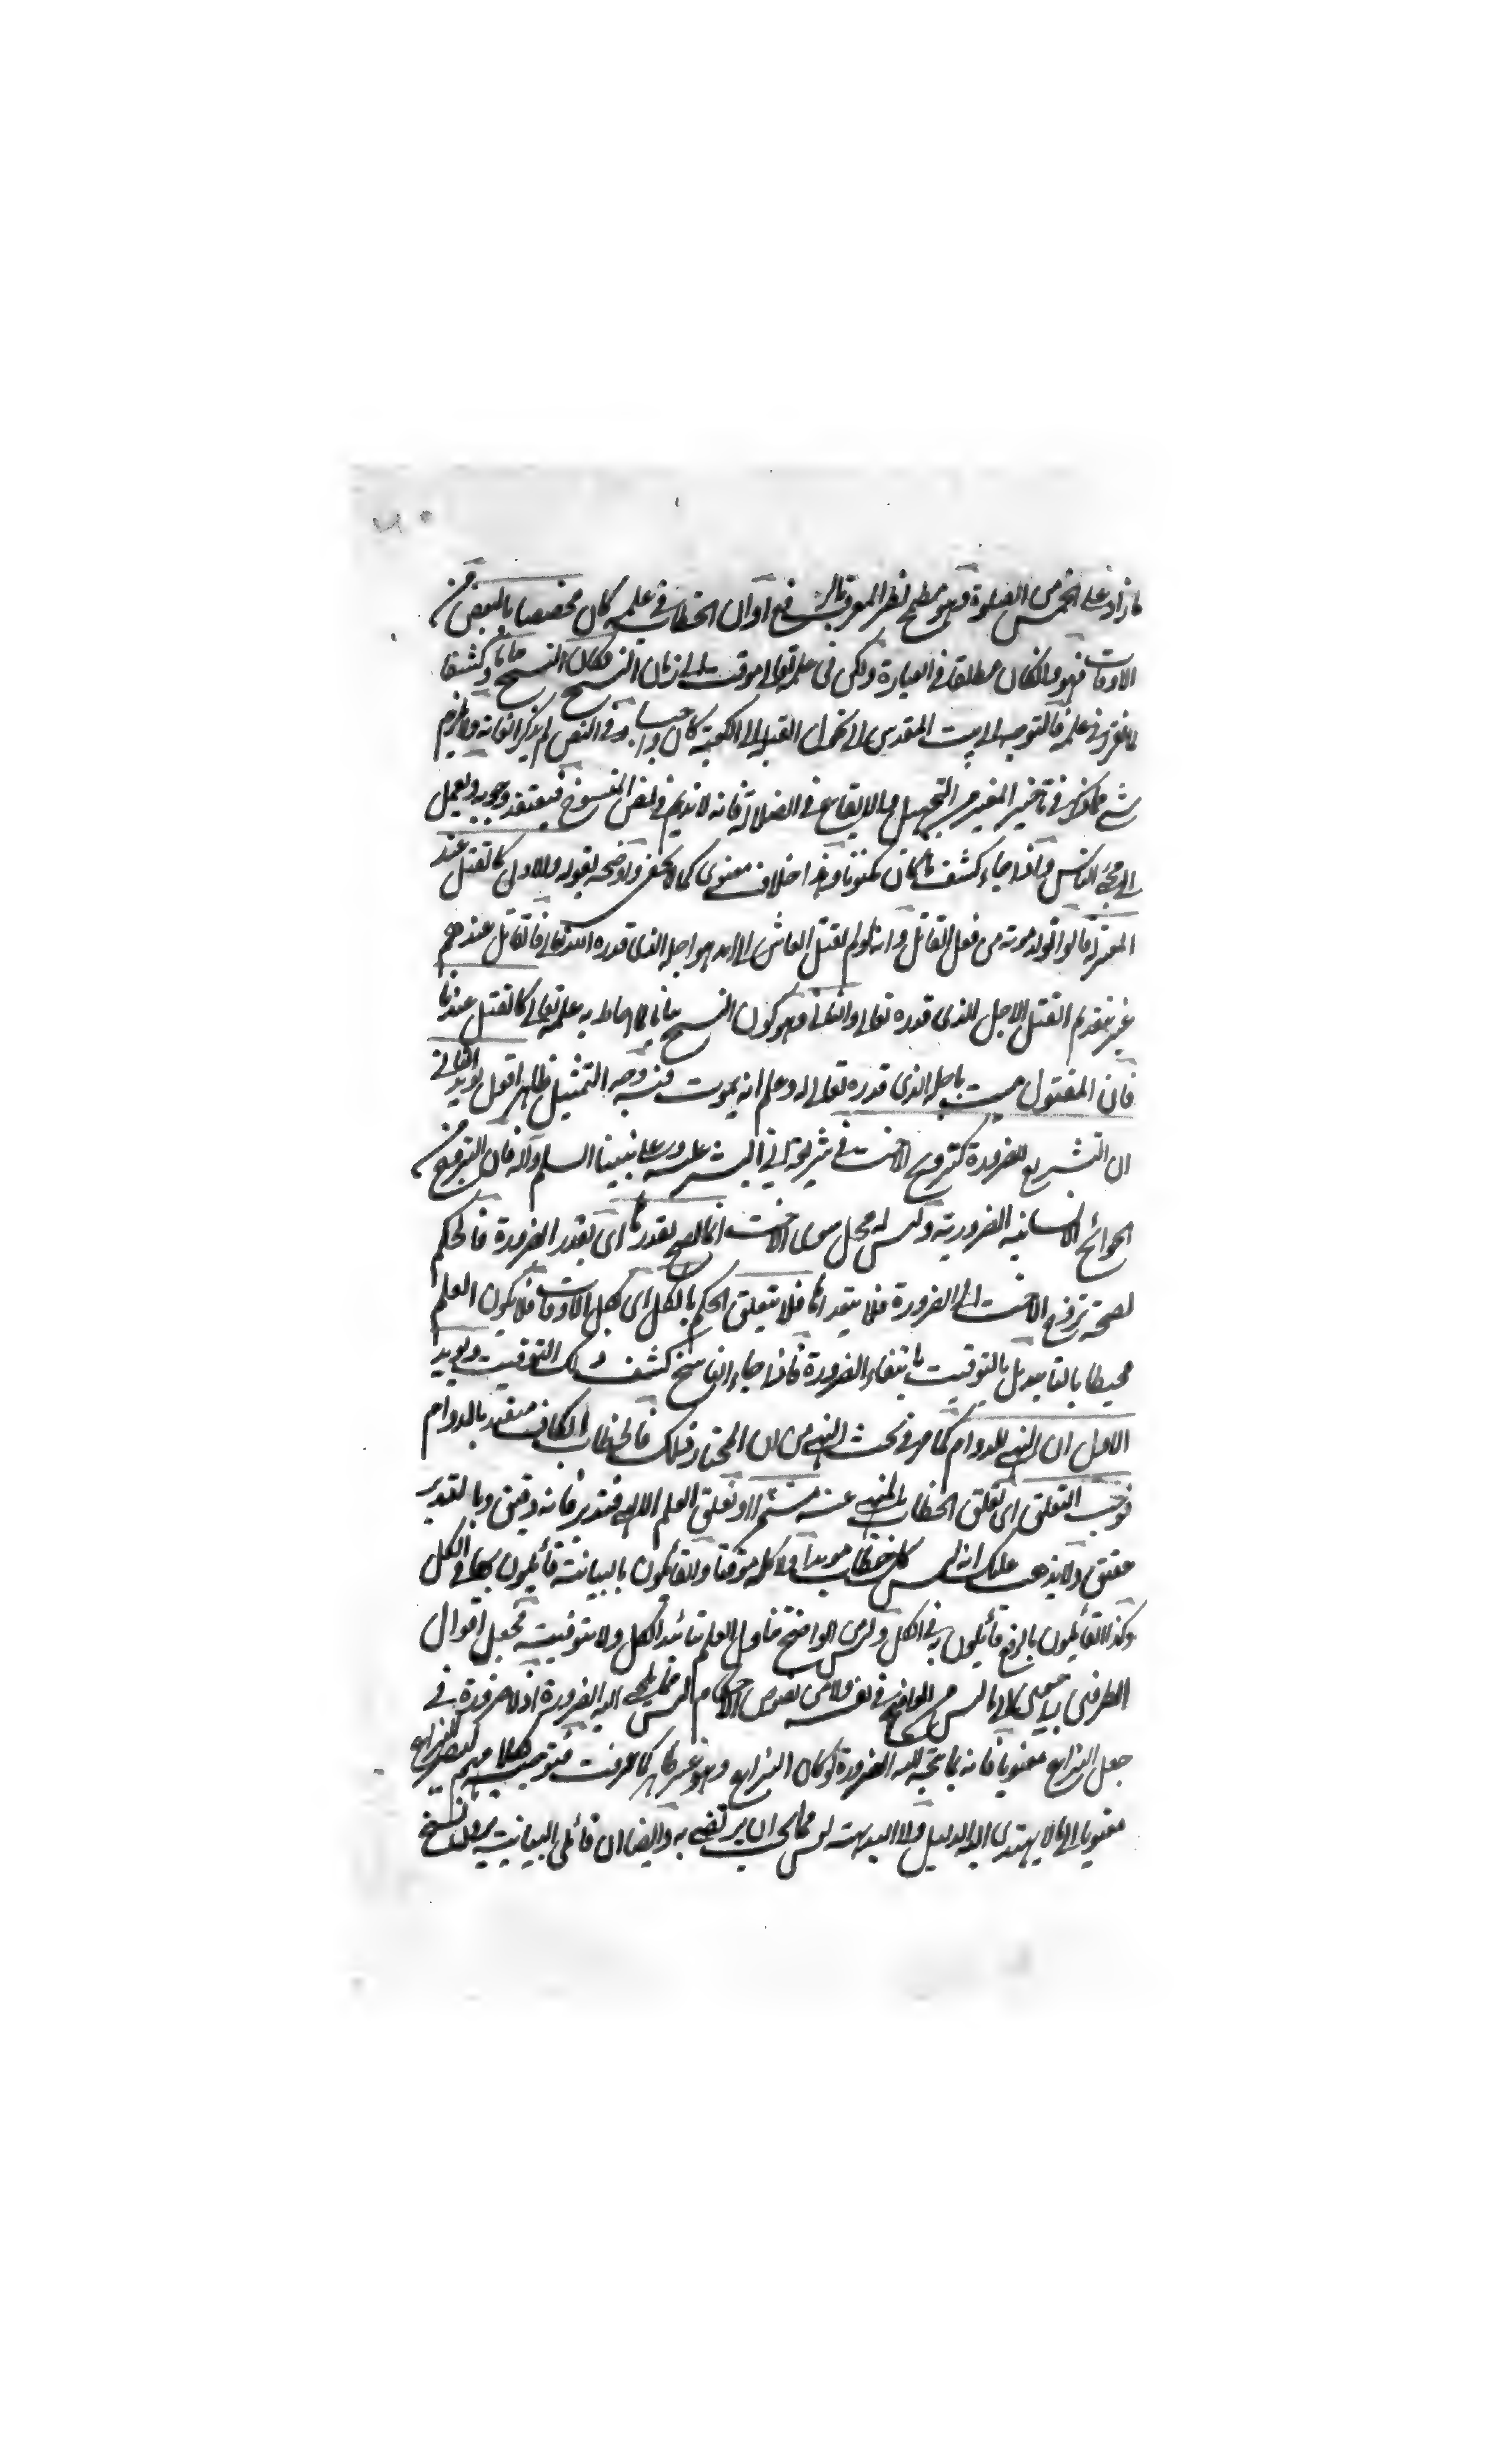 ما زاد على الخمس الصلوة وهو مطمح نظر المعرف بالرفع او ان الخطاب في علمه كان مخصصا بالبعض من
الاوقات فهو وان كان مطلقا في العبارة ولكن في علمه تعالى موقت الى زمان النسخ فكان النسخ بيانا وكشفا
لما تقرر في علمه فالتوجه الى بيت المقدس الى تحول القبلة الى الكعبة كان واجبا وفي النص لم يذكر الغاية ولا يلزم
شئ مما ذكر في تاخير المغير من التجهيل والايقاع في الضلالة فانه لا في نفس المنسوخ فيعتقد وجوبه ويعمل
الى مجئ الناسخ واذا جاء كشف ما كان مكنونا وهذا خلاف معنوي كما لا يخفى واوضحه بقوله والاول كالقتل عند
المعتزلة قالوا تولد موته من فعل القاتل وانه لو لم يقتل لعاش الى امد هو اجله الذي قدره الله تعالى فالقاتل عندهم
غير بتقديم القتل الاجل الذي قدره تعالى والثاني وهو كون النسخ بيانا لما احاط به علمه تعالى كالقتل عندنا
فان المقتول ميت باجله الذي قدره تعالى له وعلم انه يموت فيه وجه التمثيل ظاهر اقول يؤيد الثاني
ان التشريع للضرورة كتزويج الاخت في شريعة ابي البشر عليه وعلى نبينا السلم واله فان التزويج من
الحوائج الانسانية الضرورية وليس له محل سوى الاخت انما يصح بقدرها اى بقدر الضرورة فالحكم
لصحة تزويج الاخت الى الضرورة فلا يتعداها فلا يتعلق الحكم بالكل اى كل الاوقات فلا يكون العلم
محيطا بالتابيد بل بالتوقيت بانتفاء الضرورة فاذا جاء الناسخ كشف ذلك التوقيت ويؤيد
الاول ان النهي للدوام كما مر في بحث النهي من ان المختار ذلك فالخطاب الكاف مقيد بالدوام
فوجب التعلق اى تعلق الخطاب بالمنهي عنه مستمرا وتعلق العلم الالهي فتدبر فانه دقيق وبالتدبر
حقيق ولا يذهب عليك انه ليس كل خطاب مؤبدا ولا كله موقتا والقائلون بالبيانية قائلون بها في الكل
وكذا القائلون بالرفع قائلون به في الكل وليس الواضح تناول العلم تبائيد الكل ولا بتوقيته فجعل اقوال
الطرفين راجعين الى ما ليس من الواضح في نفسه ولا من نصوص الاحكام ليس مما يلجئ اليه الضرورة اذ لا ضرورة في
جعل النزاع معنويا فانه بما يتجه اليه الضرورة لو كان النزاع وهو غير ظاهر كما عرفت فتوجيه كلامهم ليصير النزاع
معنويا الى ما لا يهتدى اليه الدليل ولا البديهة ليس مما يجب ان يرتضى به وايضا ان قائلي البيانية يرون نسخ